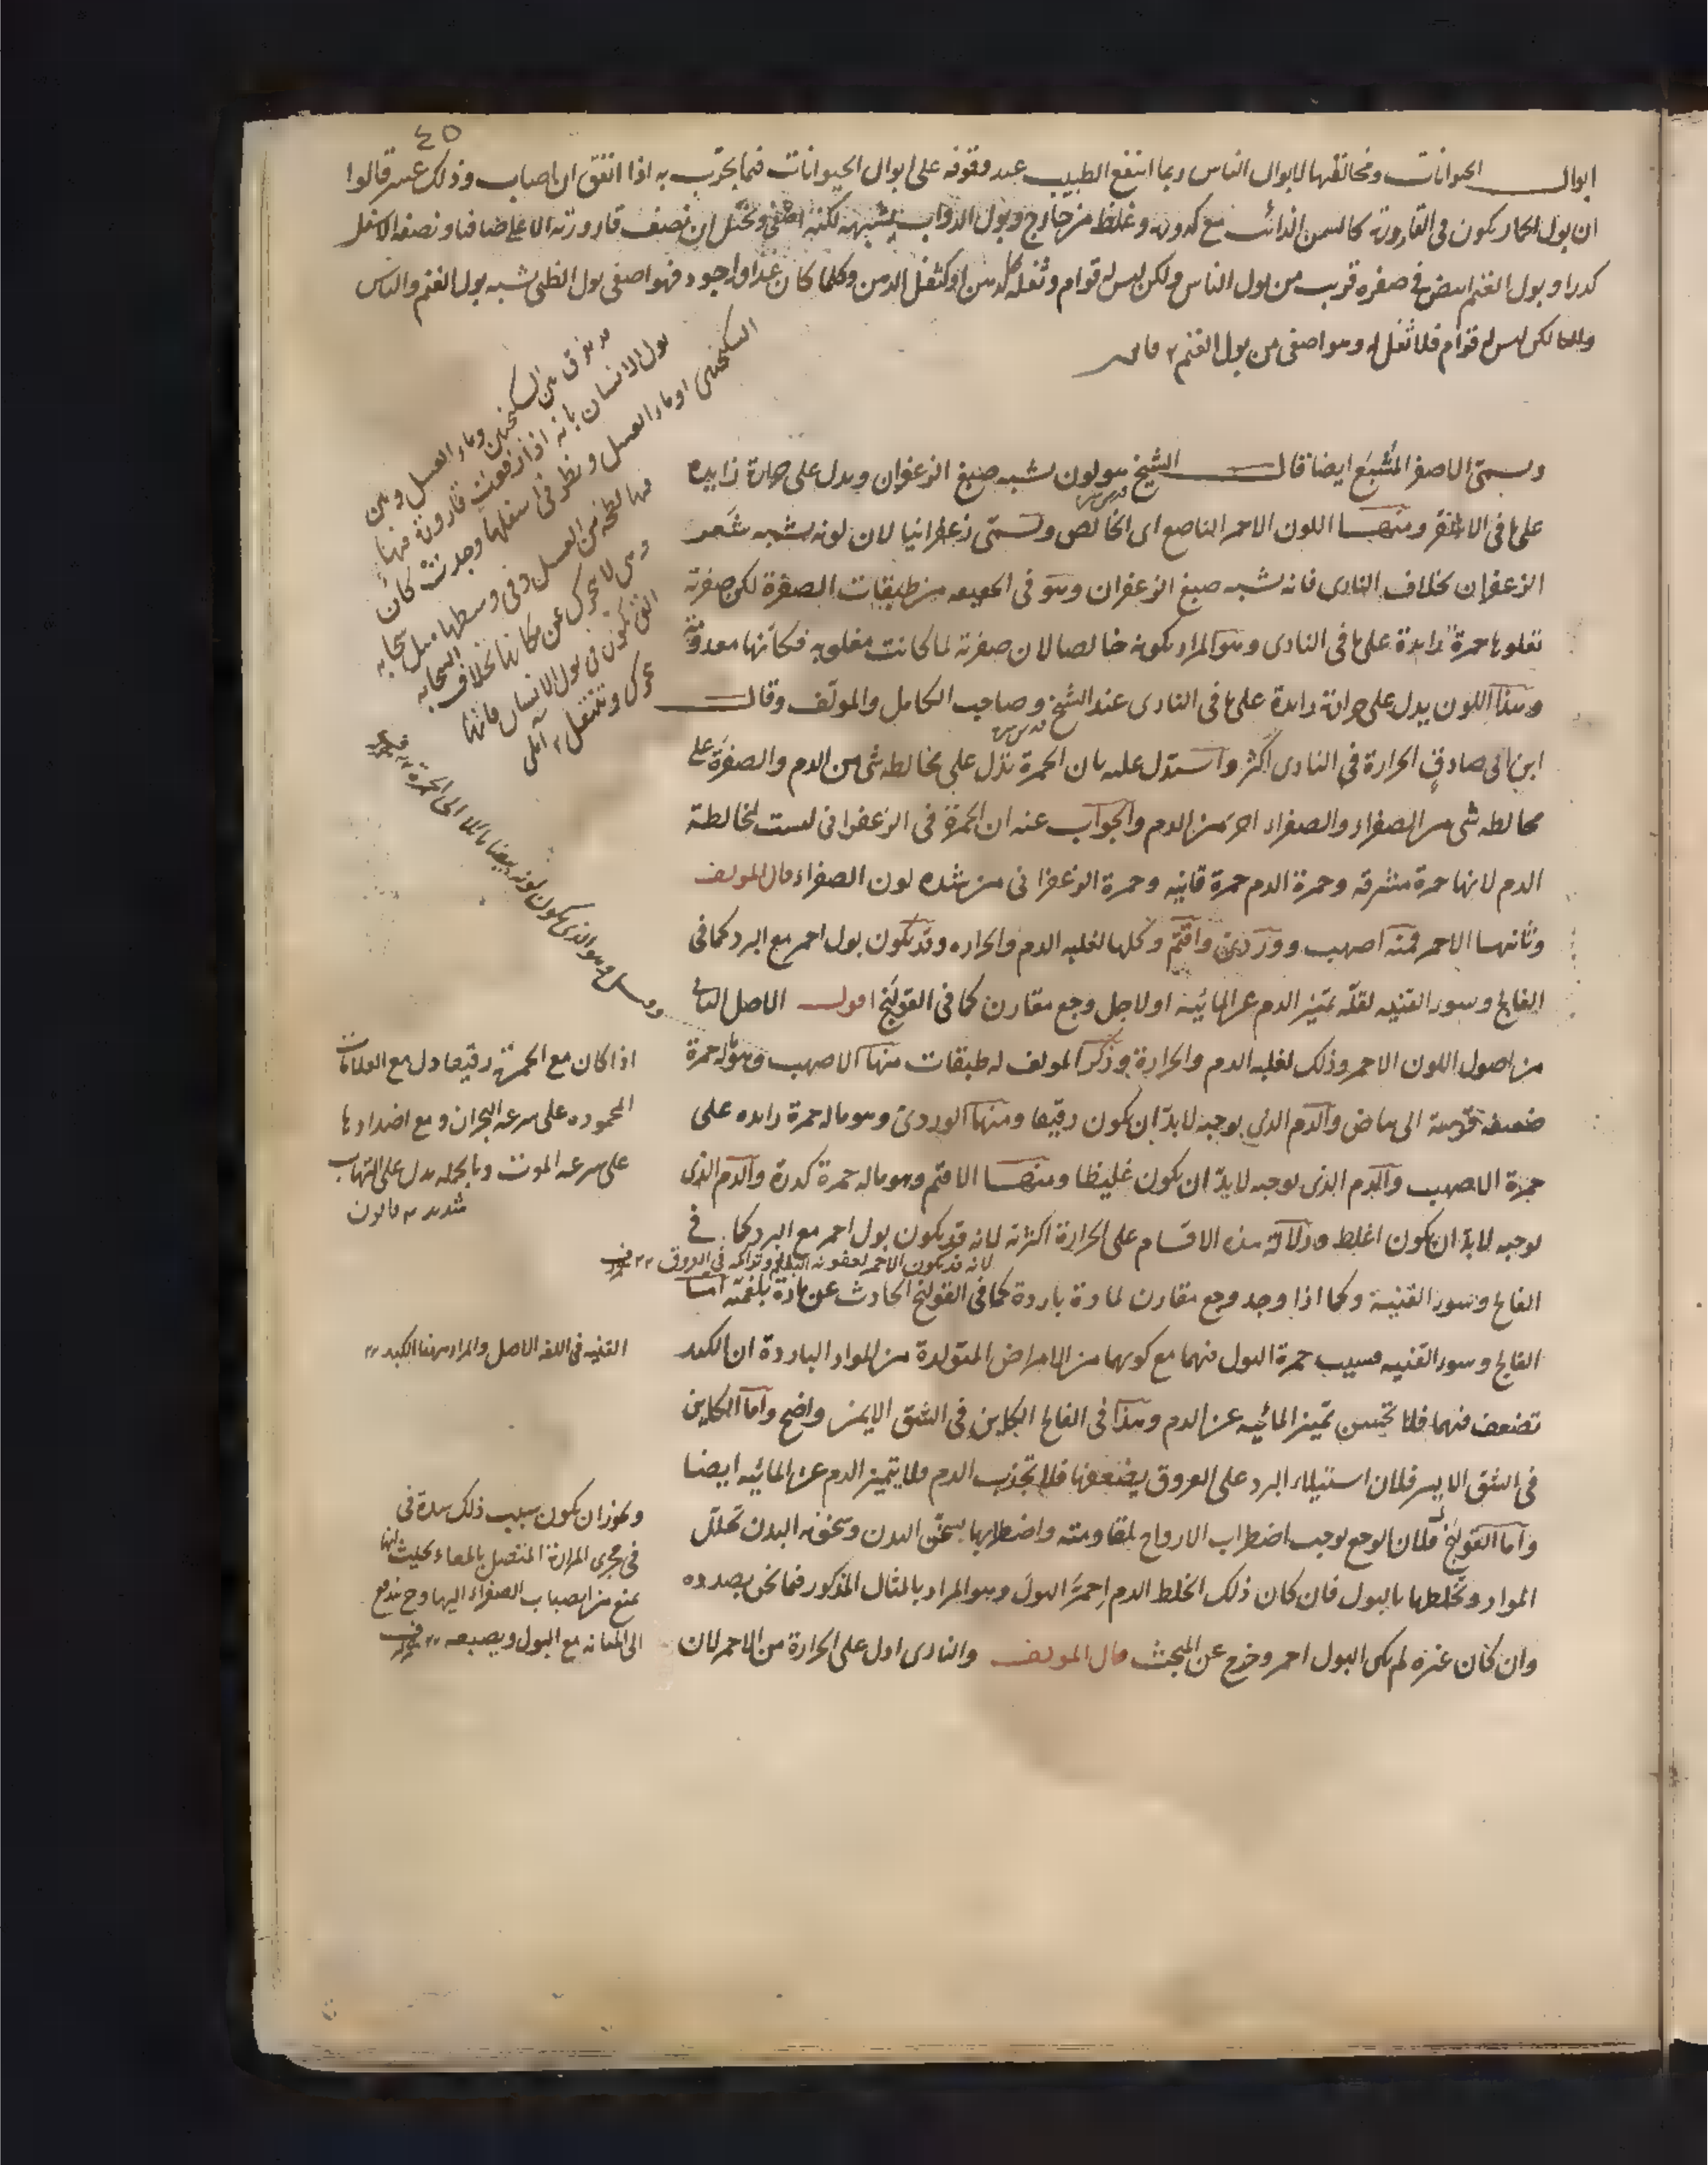 ٤٥
ابوال الحيوانات ومخالفتها لابوال الناس ربما انتفع الطبيب عند وقوفه على ابوال الحيوانات فيما يجرب به اذا اتفق ان اصاب وذلك عسر قالوا
ان بول الحمار يكون فى القارورة كالسمن الذائب مع كدورة وغلظ من خارج وبول الدواب يشبهه لكنه اصفى ويخيل ان نصف قارورته الاعلى صاف ونصفه الاسفل
كدر وبول الغنم ابيض فى صفرة قريب من بول الناس ولكن ليس له قوام وثفله كالدهن او كثفل الدهن وكلما كان غذاؤه اجود فهو اصفى بول الظبى يشبه بول الغنم والناس
ولكن ليس له قوام فلا ثفل له وهو اصفى من بول الغنم
ويسمى الاصفر المشبع ايضا قال الشيخ هو لون يشبه صبغ الزعفران ويدل على حرارة زايدة
على ما فى الاشقر ومنها اللون الاحمر الناصع اى الخالص ويسمى زعفرانيا لان لونه يشبه شعر
الزعفران بخلاف النارى فانه يشبه صبغ الزعفران وهو فى الحقيقه من طبقات الصفرة لكن صفرته
تعلوها حمرة زايدة على ما فى النارى وهو المراد بكونه خالصا لان صفرته لما كانت مغلوبه فكانها معدومة
وهذا اللون يدل على حرارة زايدة على ما فى النارى عند الشيخ وصاحب الكامل والمولف وقال
ابن ابى صادق الحرارة فى النارى اكثر واستدل عليه بان الحمرة تدل على مخالطه شى من الدم والصفرة على
مخالطه شى من الصفراء والصفراء احر من الدم والجواب عنه ان الحمرة فى الزعفرانى ليست لمخالطة
الدم لانها حمرة مشرقه وحمرة الدم حمرة قانيه وحمرة الزعفرانى من شده لون الصفراء قال المولف
وثانيها الاحمر فمنه اصهب ووردى واقتم وكلها لغلبه الدم والحراره وقد يكون بول احمر مع البرد كما فى
الفالج وسوء القنيه لقلة تميز الدم عن المائية او لاجل وجع مقارن كما فى القولنج اقول الاصل الثانى
من اصول اللون الاحمر وذلك لغلبه الدم والحرارة وذكر المولف له طبقات منها الاصهب وهو ما له حمرة
ضعيفة قريبة الى بياض والدم الذى يوجبه لا بد ان يكون رقيقا ومنها الوردى وهو ماله حمرة زايده على
حمرة الاصهب والدم الذى يوجبه لا بد ان يكون غليظا ومنها الاقتم وهو ماله حمرة كدرة والدم الذى
يوجبه لا بد ان يكون اغلظ ودلالة هذه الاقسام على الحرارة اكثرية لانه قد يكون بول احمر مع البرد كما فى
لانه قد يكون الاحمر لعفونه البلغم وتراكمه فى العروق
الفالج وسوء القنية وكما اذا وجد وجع مقارن لمادة باردة كما فى القولنج الحادث عن مادة بلغمية اما
الفالج وسوء القنيه فسبب حمرة البول فيهما مع كونهما من الامراض المتولدة من المواد الباردة ان الكبد
تضعف فيهما فلا تحسن تميز المائيه عن الدم وهذا فى الفالج الكاين فى الشق الايمن واضح واما الكاين
فى الشق الايسر فلان استيلاء البرد على العروق يضعفها فلا تجذب الدم ولا يتميز الدم عن المائيه ايضا
واما القولنج فلان الوجع يوجب اضطراب الارواح لمقاومته واضطرابها يسخن البدن وسخونه البدن تحلل
المواد وتخلطها بالبول فان كان ذلك الخلط الدم احمر البول وهو المراد بالمثال المذكور فيما نحن بصدده
وان كان غيره لم يكن البول احمر وخرج عن المبحث قال المولف والنارى ادل على الحرارة من الاحمر لان
يفرق بين السكنجبين وماء العسل وبين
بول الانسان بانه اذا رفعت قارورة فيها
السكنجبين او ماء العسل ونظر فى اسفلها وجدت كان
فيها لطخه من العسل وفى وسطها مثل سحابه
وهى لا تتحرك عن مكانها بخلاف السحابه
التى تكون فى بول الانسان فانها
تتحرك وتنتقل
وهو الذى يكون لونه بيضا مائلا الى الحمرة
اذا كان مع الحمرة رقيقا دل مع العلامات
المحموده على سرعه البحران ومع اضدادها
على سرعه الموت وبالجمله يدل على التهاب
شديد قانون
القنيه فى اللغه الاصل والمراد هنا الكبد
ويجوز ان يكون سبب ذلك سدة فى
فى مجرى المرارة المتصل بالمعاء بحيث انها
تمنع من انصباب الصفراء اليها وح تندفع
الى المثانه مع البول ويصبغه